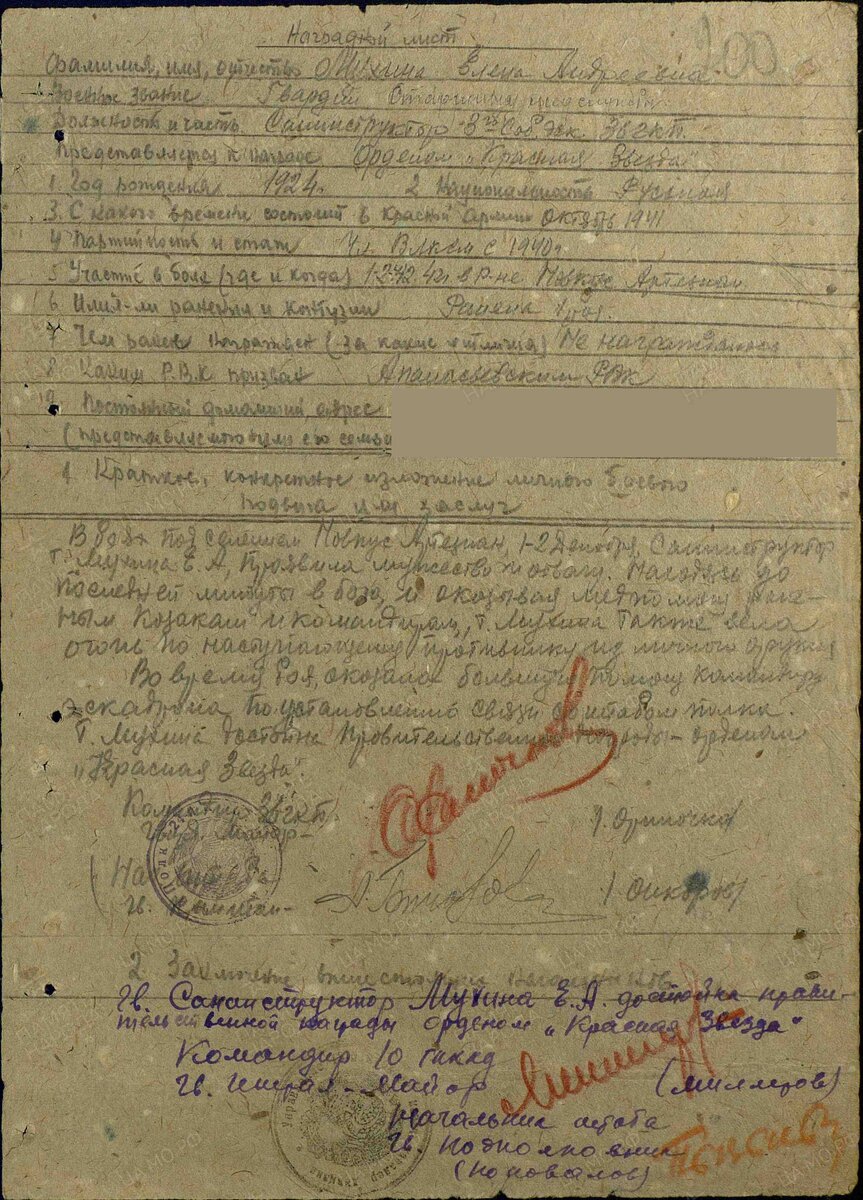 Наградной лист
200
Фамилия, имя, отчество Мухина Елена Андреевна
Военное звание Гвардии Старшина
Должность и часть Санинструктор 3го Саб. Эск. 36гкп.
Представляется к награде Орденом "Красная Звезда"
1. Год рождения 1924г. 2 Национальность Русская
3. С какого времени состоит в красной армии октябрь 1941
4 Партийность и стаж Чл. Влксм с 1940г.
5 Участие в боях (где и когда) в р-не Новкус Артезиан
6 Имел-ли ранения и контузии Ранена
7 Чем ранее награжден (за какие отличия) Не награждалась
8 Каким Р.В.К призван Апанасьевским РВК
9 Постоянный домашний адрес
(представляемого или его семьи
1 Краткое, конкретное изложение личного боевого
подвига или заслуг
В боях под селением Новкус Артезиан, 1-2 декабря, Санинструктор
т. Мухина Е.А, Проявила мужество и отвагу. Находясь до
последней минуты в бою, и оказывая медпомощ ране-
ным Козакам и командирам, т. Мухина также вела
огонь по наступающему противнику из личного оружия
Во время боя, оказала большую помощ командиру
эскадрона по установлению связи со штабом полка.
Т. Мухина достойна Правительственной награды - орденом
"Красная Звезда".
Командир 36гкп.
Гв. Майор- /Ориночко/
Нач. штаба-
Гв. Капитан-
2 Заключение вышестоящих начальников
Гв. Санинструктор Мухина Е.А. достойна прави-
тельственной награды орденом "Красная Звезда"
Командир 10 гккд
Гв. Генерал-Майор (Миллеров)
Начальник штаба
Гв. подполковник
(Коновалов)